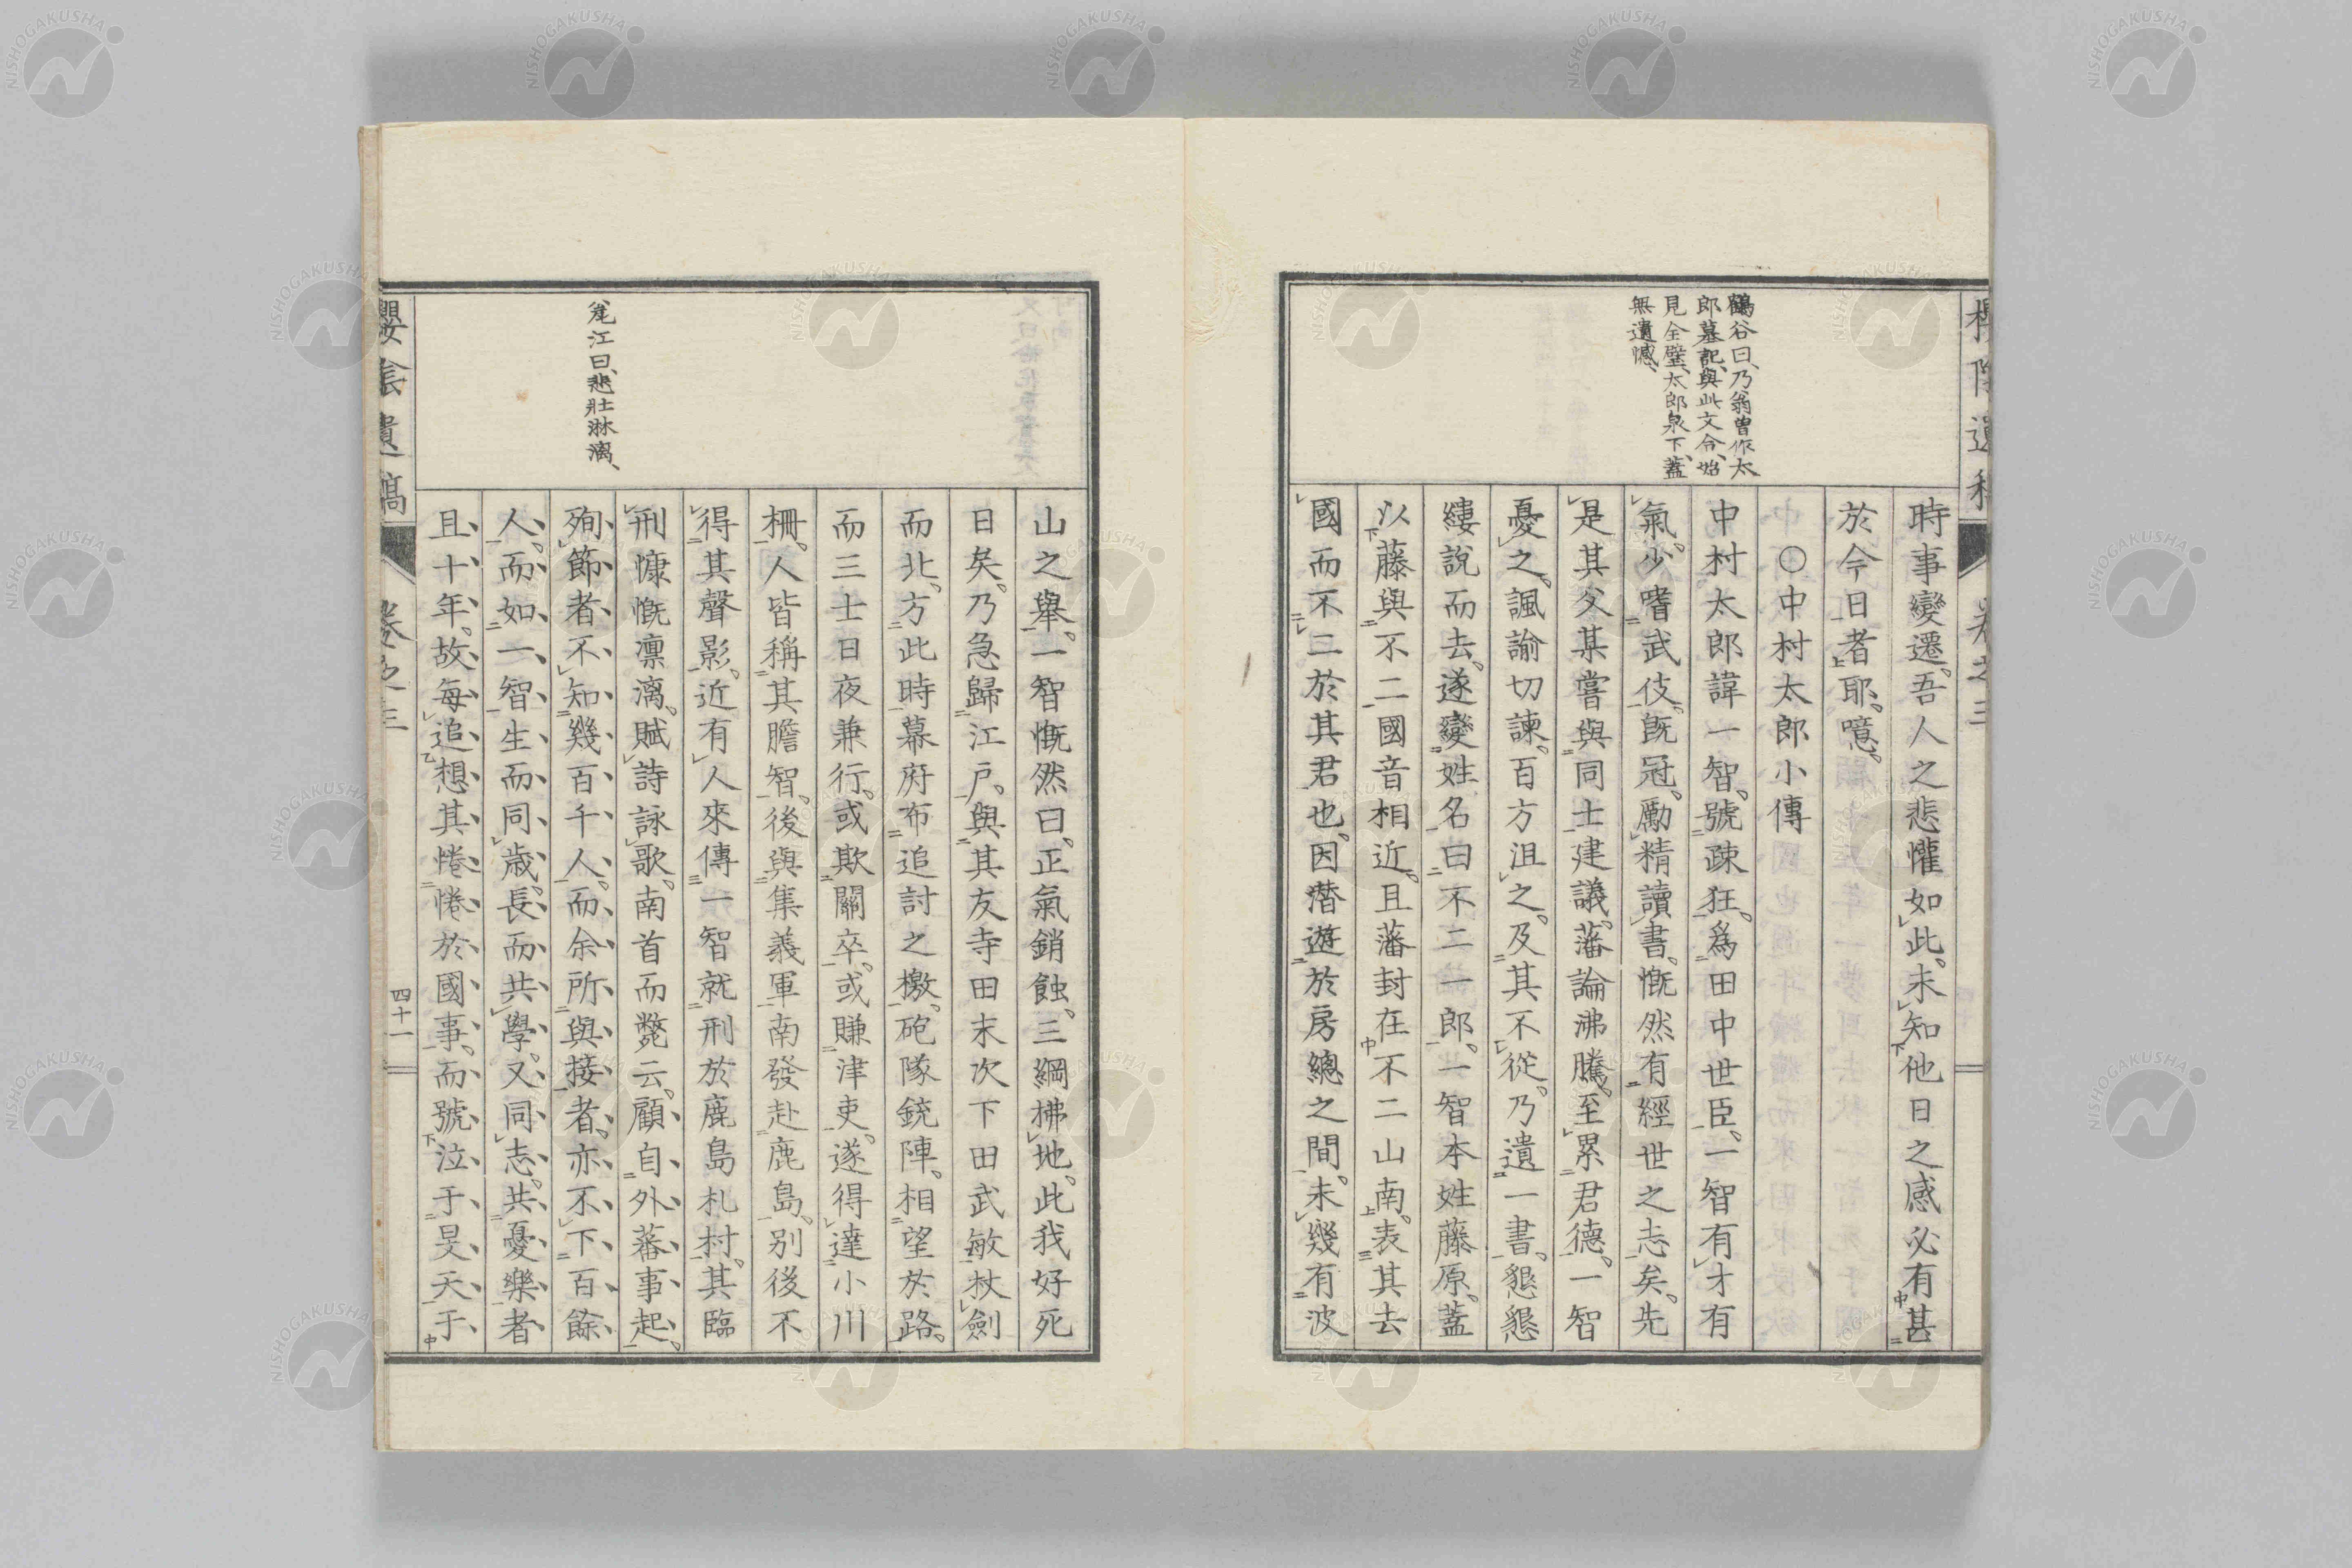 時事變遷。吾人之悲懽如此。未知他日之感必有甚
於今日者耶。噫。
○中村太郎小傳
中村太郎諱一智。號疎狂。爲田中世臣。一智有才有
氣。少嗜武伎。旣冠。勵精讀書。慨然有經世之志矣。先
是其父某嘗與同士建議。藩論沸騰。至累君德。一智
憂之。諷諭切諫。百方沮之。及其不從。乃遺一書。懇懇
縷說而去。遂變姓名曰不二一郎。一智本姓藤原。蓋
以藤與不二國音相近。且藩封在不二山南。表其去
國而不二於其君也。因潜遊於房總之間。未幾有波
鶴谷曰、乃翁曽作太
郎墓記、與此文合、始
見全璧、太郎泉下、蓋
無遺憾、
櫻陰遺稿
卷之三
山之舉。一智慨然曰。正氣銷蝕。三綱柫地。此我好死
日矣。乃急歸江戶。與其友寺田末次下田武敏杖劍
而北。方此時幕府布追討之檄。砲隊銃陣。相望於路。
而三士日夜兼行。或欺關卒。或賺津吏。遂得達小川
柵。人皆稱其膽智。後與集義軍南發赴鹿島。別後不
得其聲影。近有人來傳一智就刑於鹿島札村。其臨
刑慷慨凛漓。賦詩詠歌。南首而斃云。顧自外蕃事起。
殉節者不知幾百千人。而余所與接者。亦不下百餘
人。而如一智生而同歲。長而共學。又同志。共憂樂者
且十年。故每追想其惓惓於國事。而號泣于旻天于
江曰、悲壯淋漓、
櫻陰遺稿
卷之三
四十一
NISHOGAKUSHA